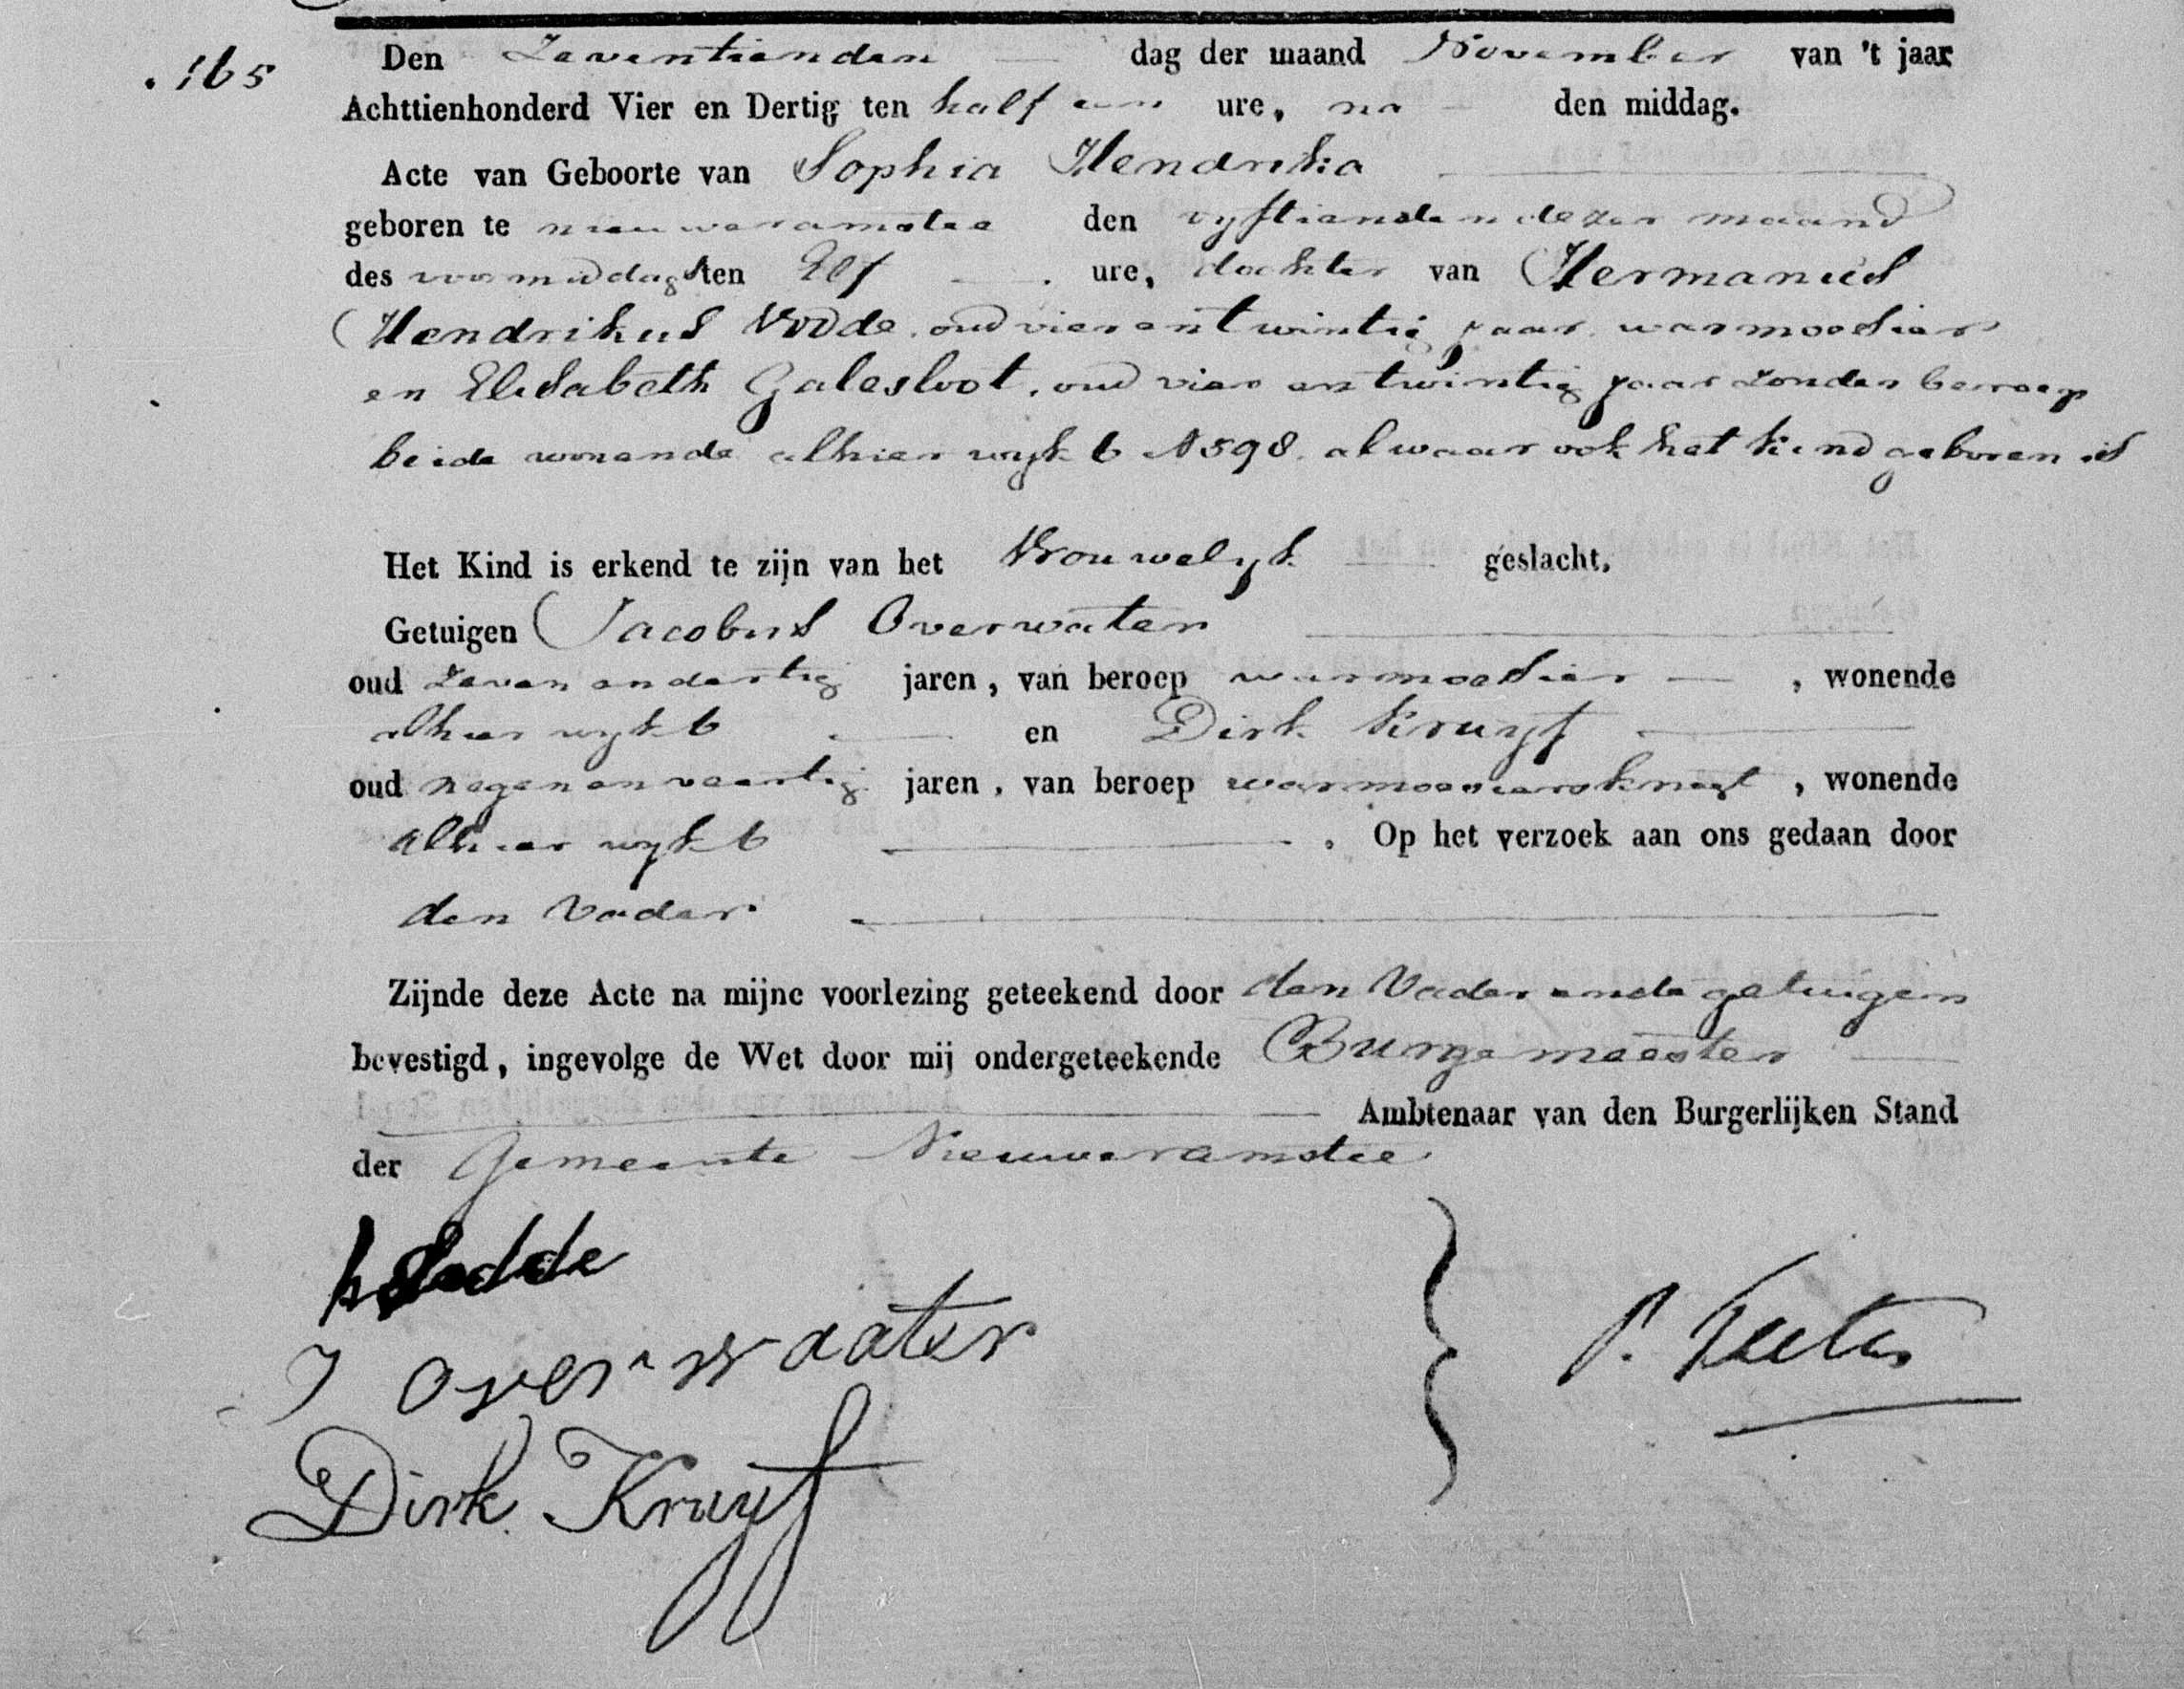 165
Den Zeventienden dag der maand November van 't jaar
Achttienhonderd Vier en Dertig ten half een ure, na den middag.
Acte van Geboorte van Sophia Hendrika
geboren te nieuweramstee den vyftienden dezer maand
des voormiddags ten Elf ure, dochter van Hermanus
Hendrikus Vodde, oud vier en twintig jaar, warmoesier
en Elisabeth Galesloot, oud vier en twintig jaar zonder beroep
beide wonende alhier wyk 6 N 598. alwaar ook het kind geboren is
Het Kind is erkend te zijn van het Vrouwelyk geslacht.
Getuigen Jacobus Overwater
oud zeven en dertig jaren, van beroep warmoesier, wonende
alhier wyk 6 en Dirk Kruyf
oud negen en veertig jaren, van beroep warmoesiersknegt, wonende
alhier wyk 6. Op het verzoek aan ons gedaan door
den Vader
Zijnde deze Acte na mijne voorlezing geteekend door den Vader en de getuigen
bevestigd, ingevolge de Wet door mij ondergeteekende Burgemeester
Ambtenaar van den Burgerlijken Stand
der Gemeente Nieuweramstee
J overwaater
Dirk Kruyf